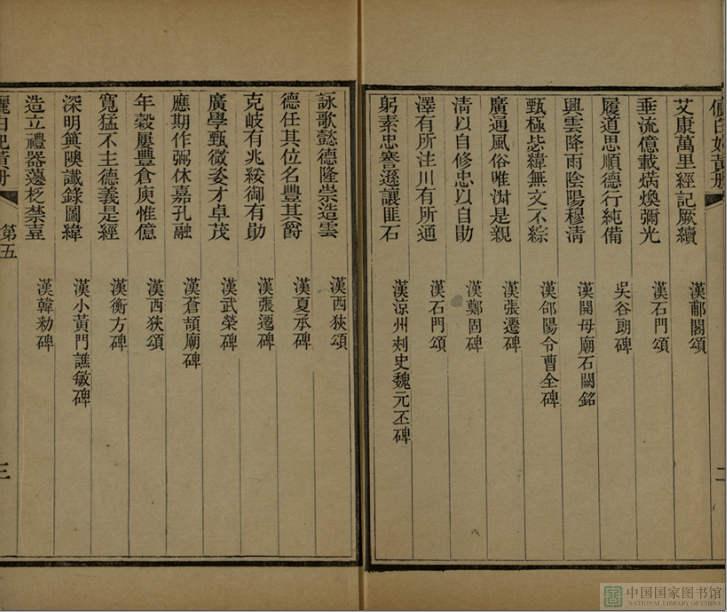 艾康萬里經記厥續 漢郙閣頌
垂流億載㷳煥彌光 漢石門頌
履道思順德行純備 吳谷朗碑
興雲降雨陰陽穆清 漢開母廟石闕銘
甄極毖緯無文不綜 漢郃陽令曹全碑
廣通風俗唯淑是親 漢張遷碑
清以自修忠以自勖 漢鄭固碑
澤有所注川有所通 漢石門頌
躬素忠謇遜讓匪石 漢涼州刺史魏元丕碑
詠歌懿德隆崇造雲 漢西狹頌
德任其位名豐其爵 漢夏承碑
克岐有兆綏御有勛 漢張遷碑
廣學甄微姿才卓茂 漢武榮碑
應期作弼休嘉孔融 漢蒼頡廟碑
年穀屢豐倉庾惟億 漢西狹頌
寬猛不主德義是經 漢衡方碑
深明箕隩讖錄圖緯 漢小黃門譙敏碑
造立禮器籩柉禁壺 漢韓勑碑
第五
三
中国国家图书馆
NATIONAL LIBRARY OF CHINA